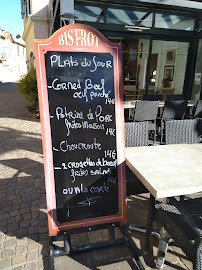 BISTROT
Plats du Jour
- Corned Beef
oeuf poché
14€
- Poitrine de Porc
14€
Choucroute
14€
- 2 croquettes de Boeuf
frites salad
14€
ou à la carte